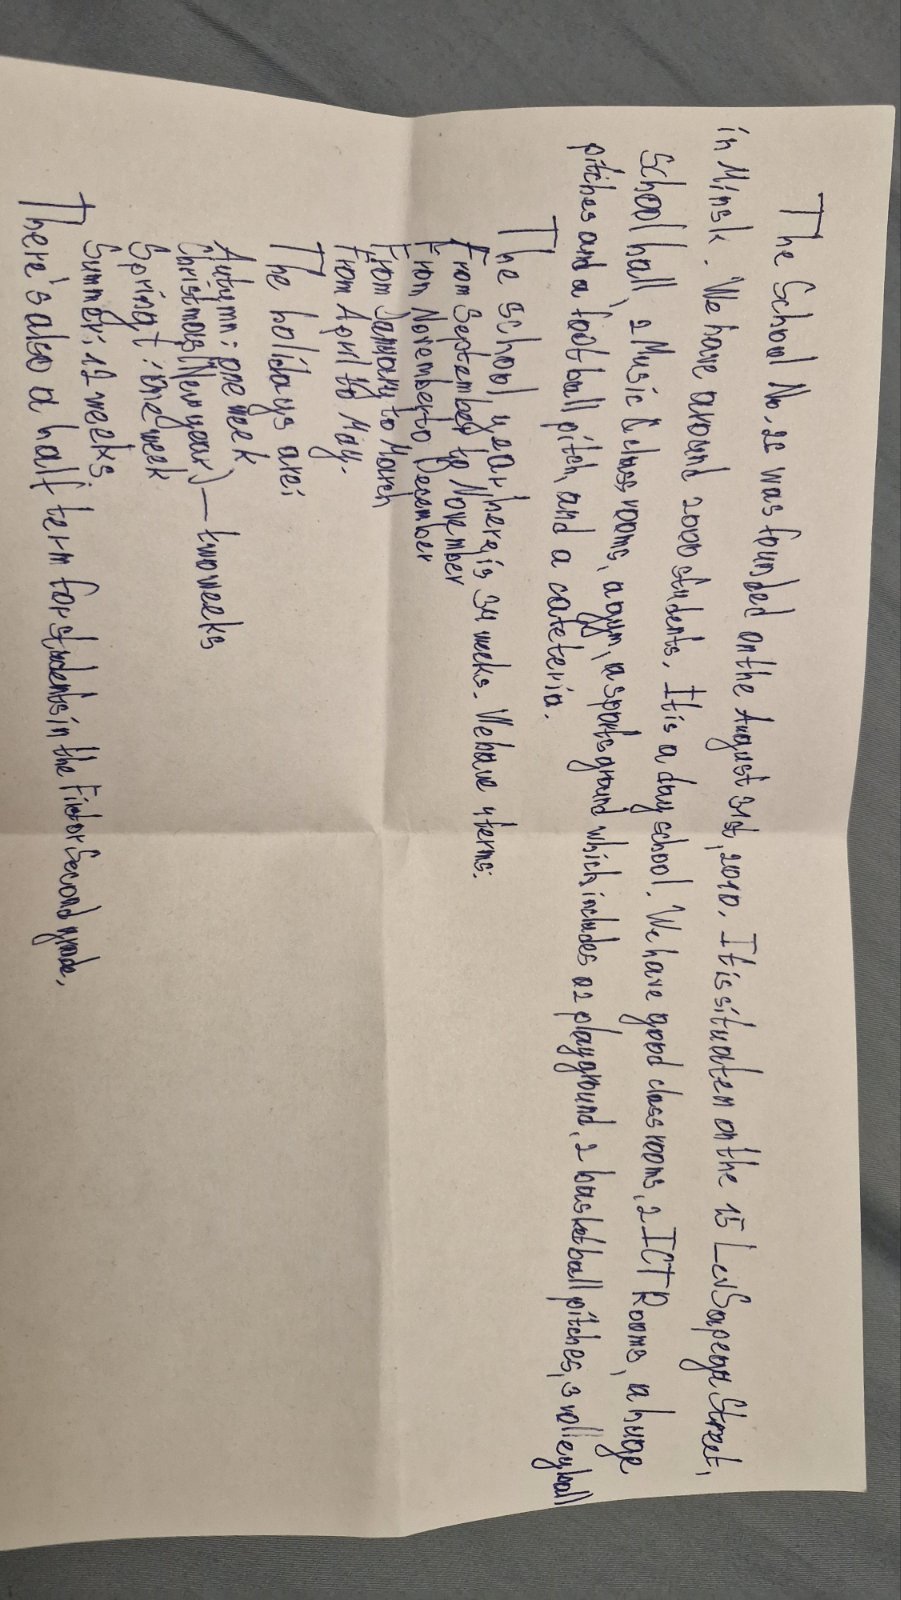 The School No. 22 was founded on the August 31st, 2010. It is situaten on the 15 Lev Sapega Street,
in Minsk. We have around 2000 students. It is a day school. We have good class rooms, 2 ICT Rooms, a huge
School hall, 2 Music class rooms, a gym, a sports ground which includes a 2 playground, 2 basketball pitches, 3 volleyball
pitches and a football pitch, and a cateteria.
The school year here is 34 weeks. We have 4 terms:
From September to November
From November to December
From January to March
From April to May.
The holidays are:
Autumn: one week
Christmas (New year) — two weeks
Spring: one week
Summer: 12 weeks.
There's also a half term for students in the First or Second grade.